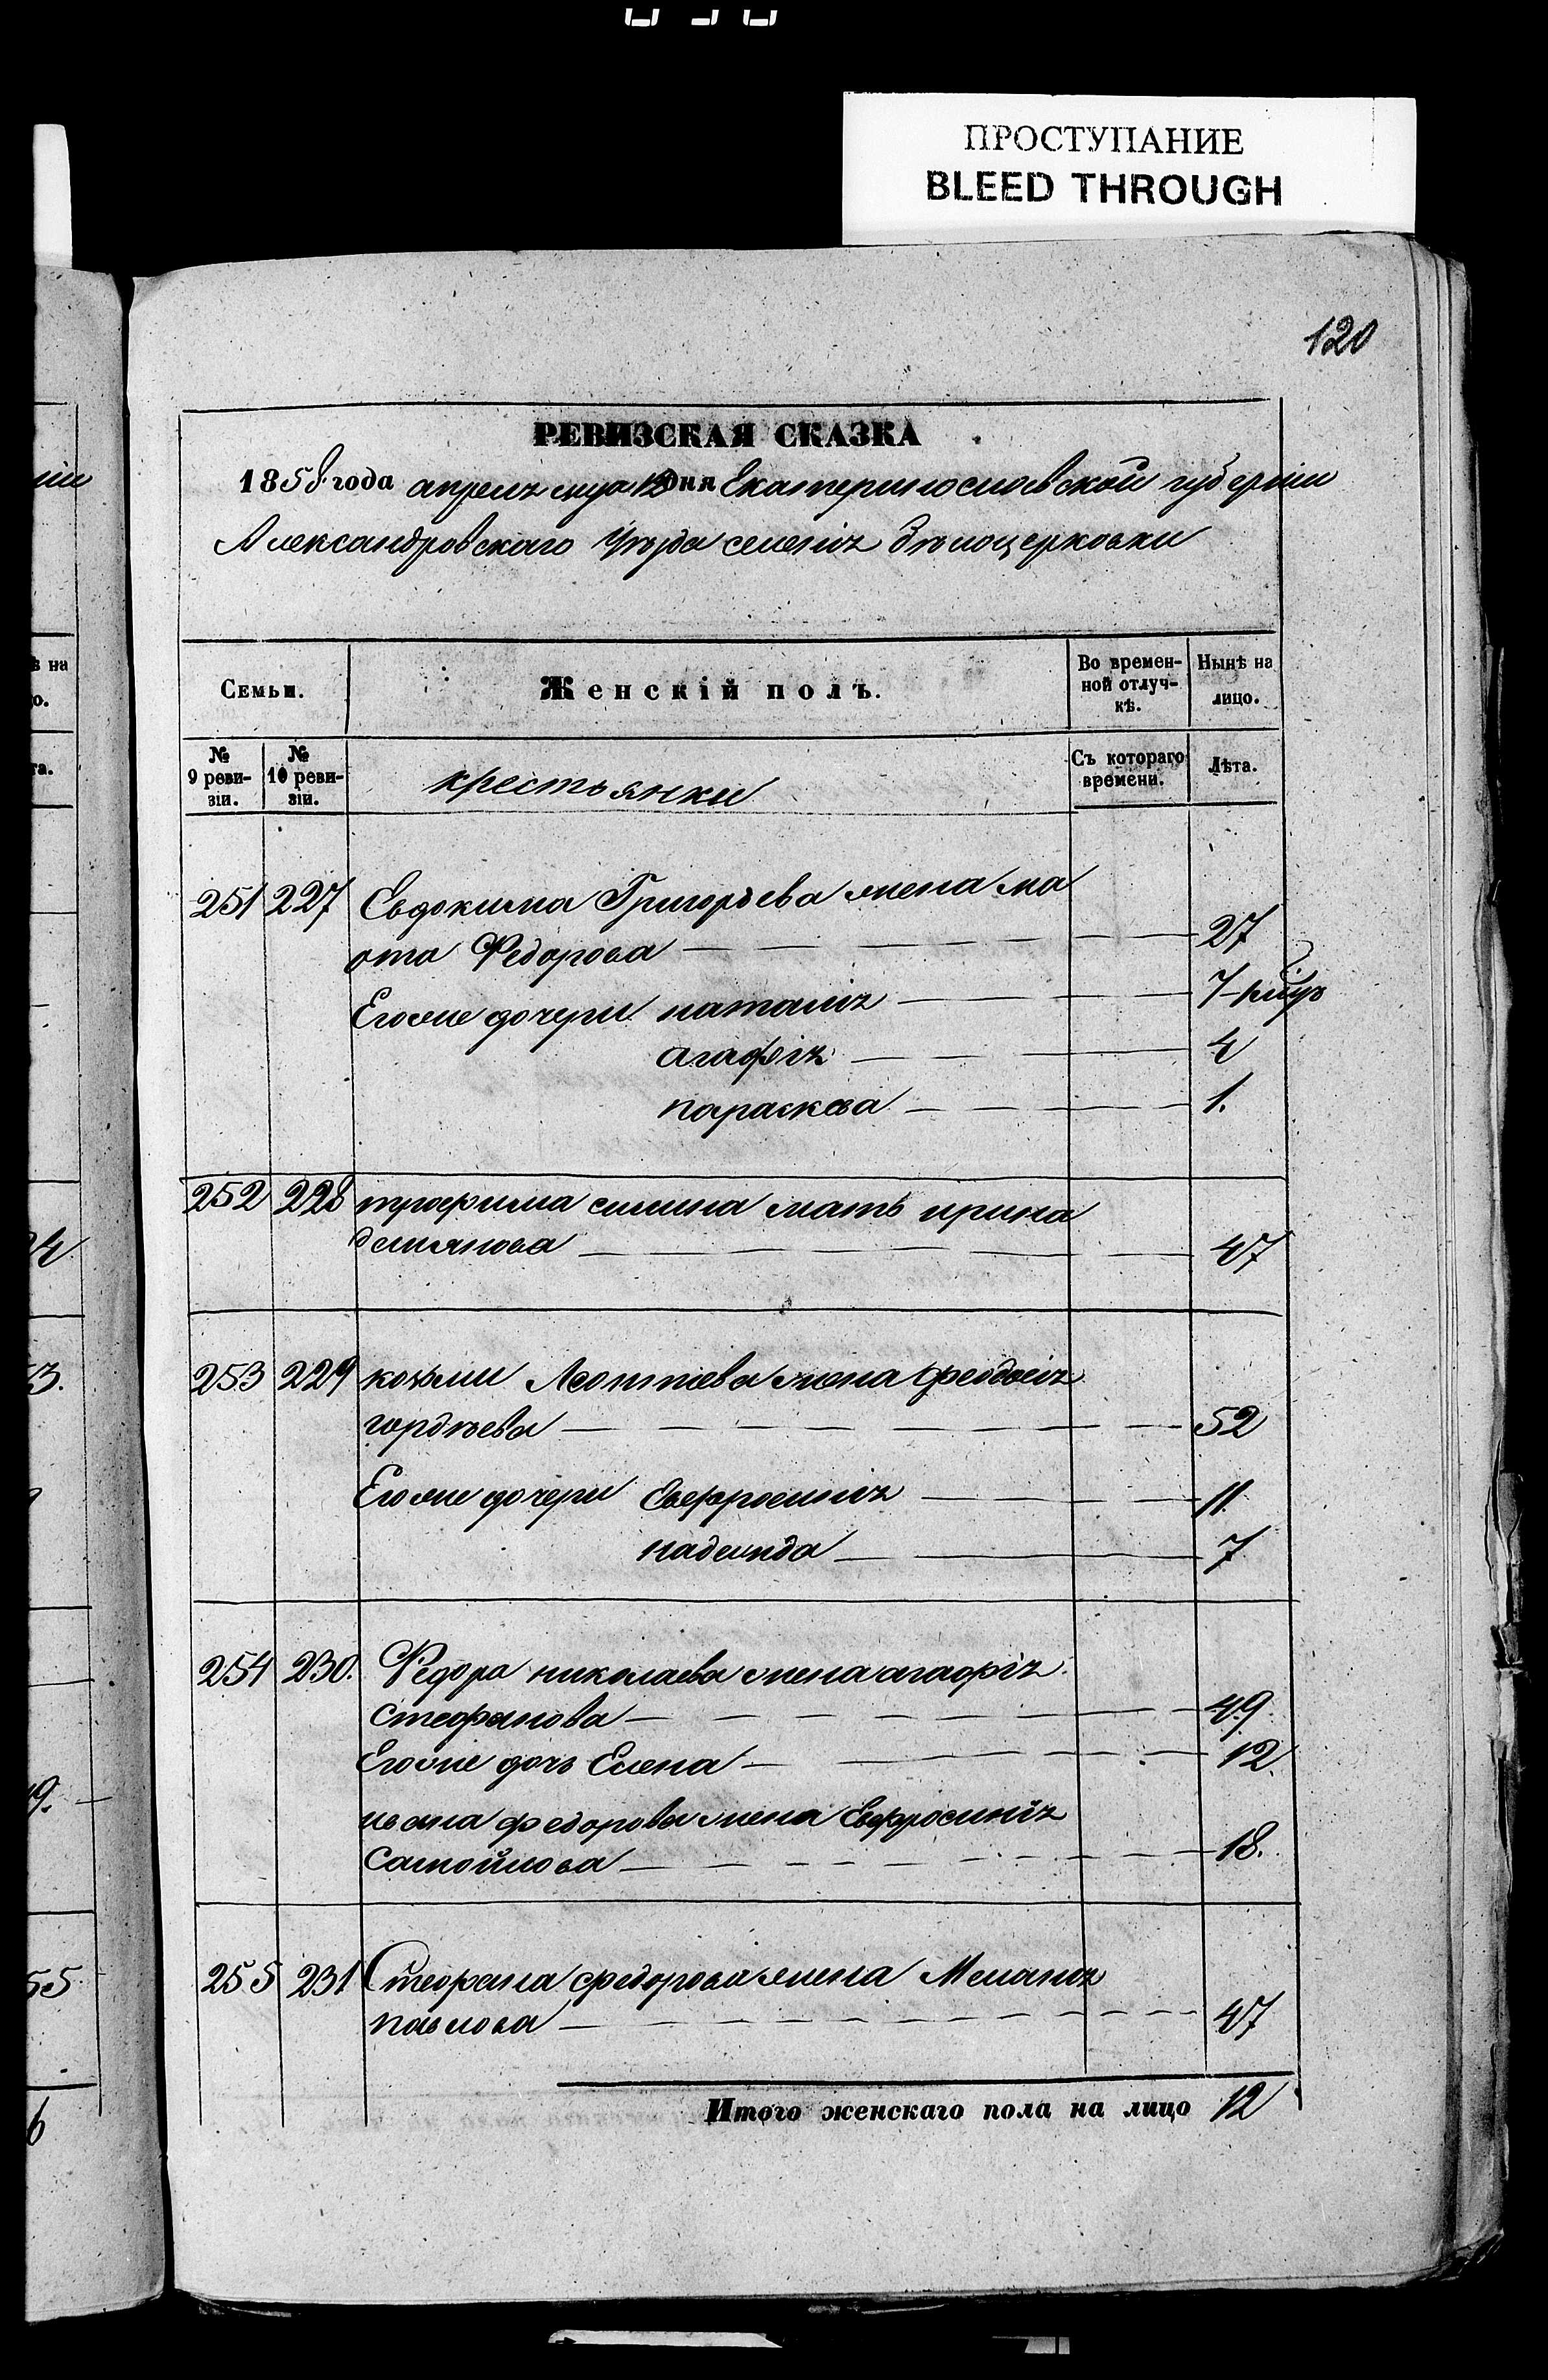 ПРОСТУПАНИЕ
BLEED THROUGH
120
РЕВИЗСКАЯ СКАЗКА
1858 года апреля мца 12 дня Екатеринославской губерніи
Александровскаго Уѣзда селенія Бѣлоцерковки
Семьи.
Женскій полъ.
Во времен-
ной отлуч-
кѣ.
Нынѣ на
лицо.
№
9 реви-
зіи.
№
10 реви-
зіи.
крестьянки
Съ котораго
времени.
Лѣта.
251 227 Евдокима Григорьева жена
Федорова 27
Егоже дочери наталія 7
агафія 4
параскева 1.
252 228 трофима силина мать ирина
демянова 47
253 229 козьми Леонтieва жена феодосія
гордѣева 52
Егоже дочери Евфросинія 11
надежда 7
254 230. Федора николаева жена агафія
стефанова 49
Егоже дочь Елена 12.
ивана федорова жена Евфросинія
самойлова 18.
255 231 Стефана федорова жена Меланія
павлова 47
Итого женскаго пола на лицо 12